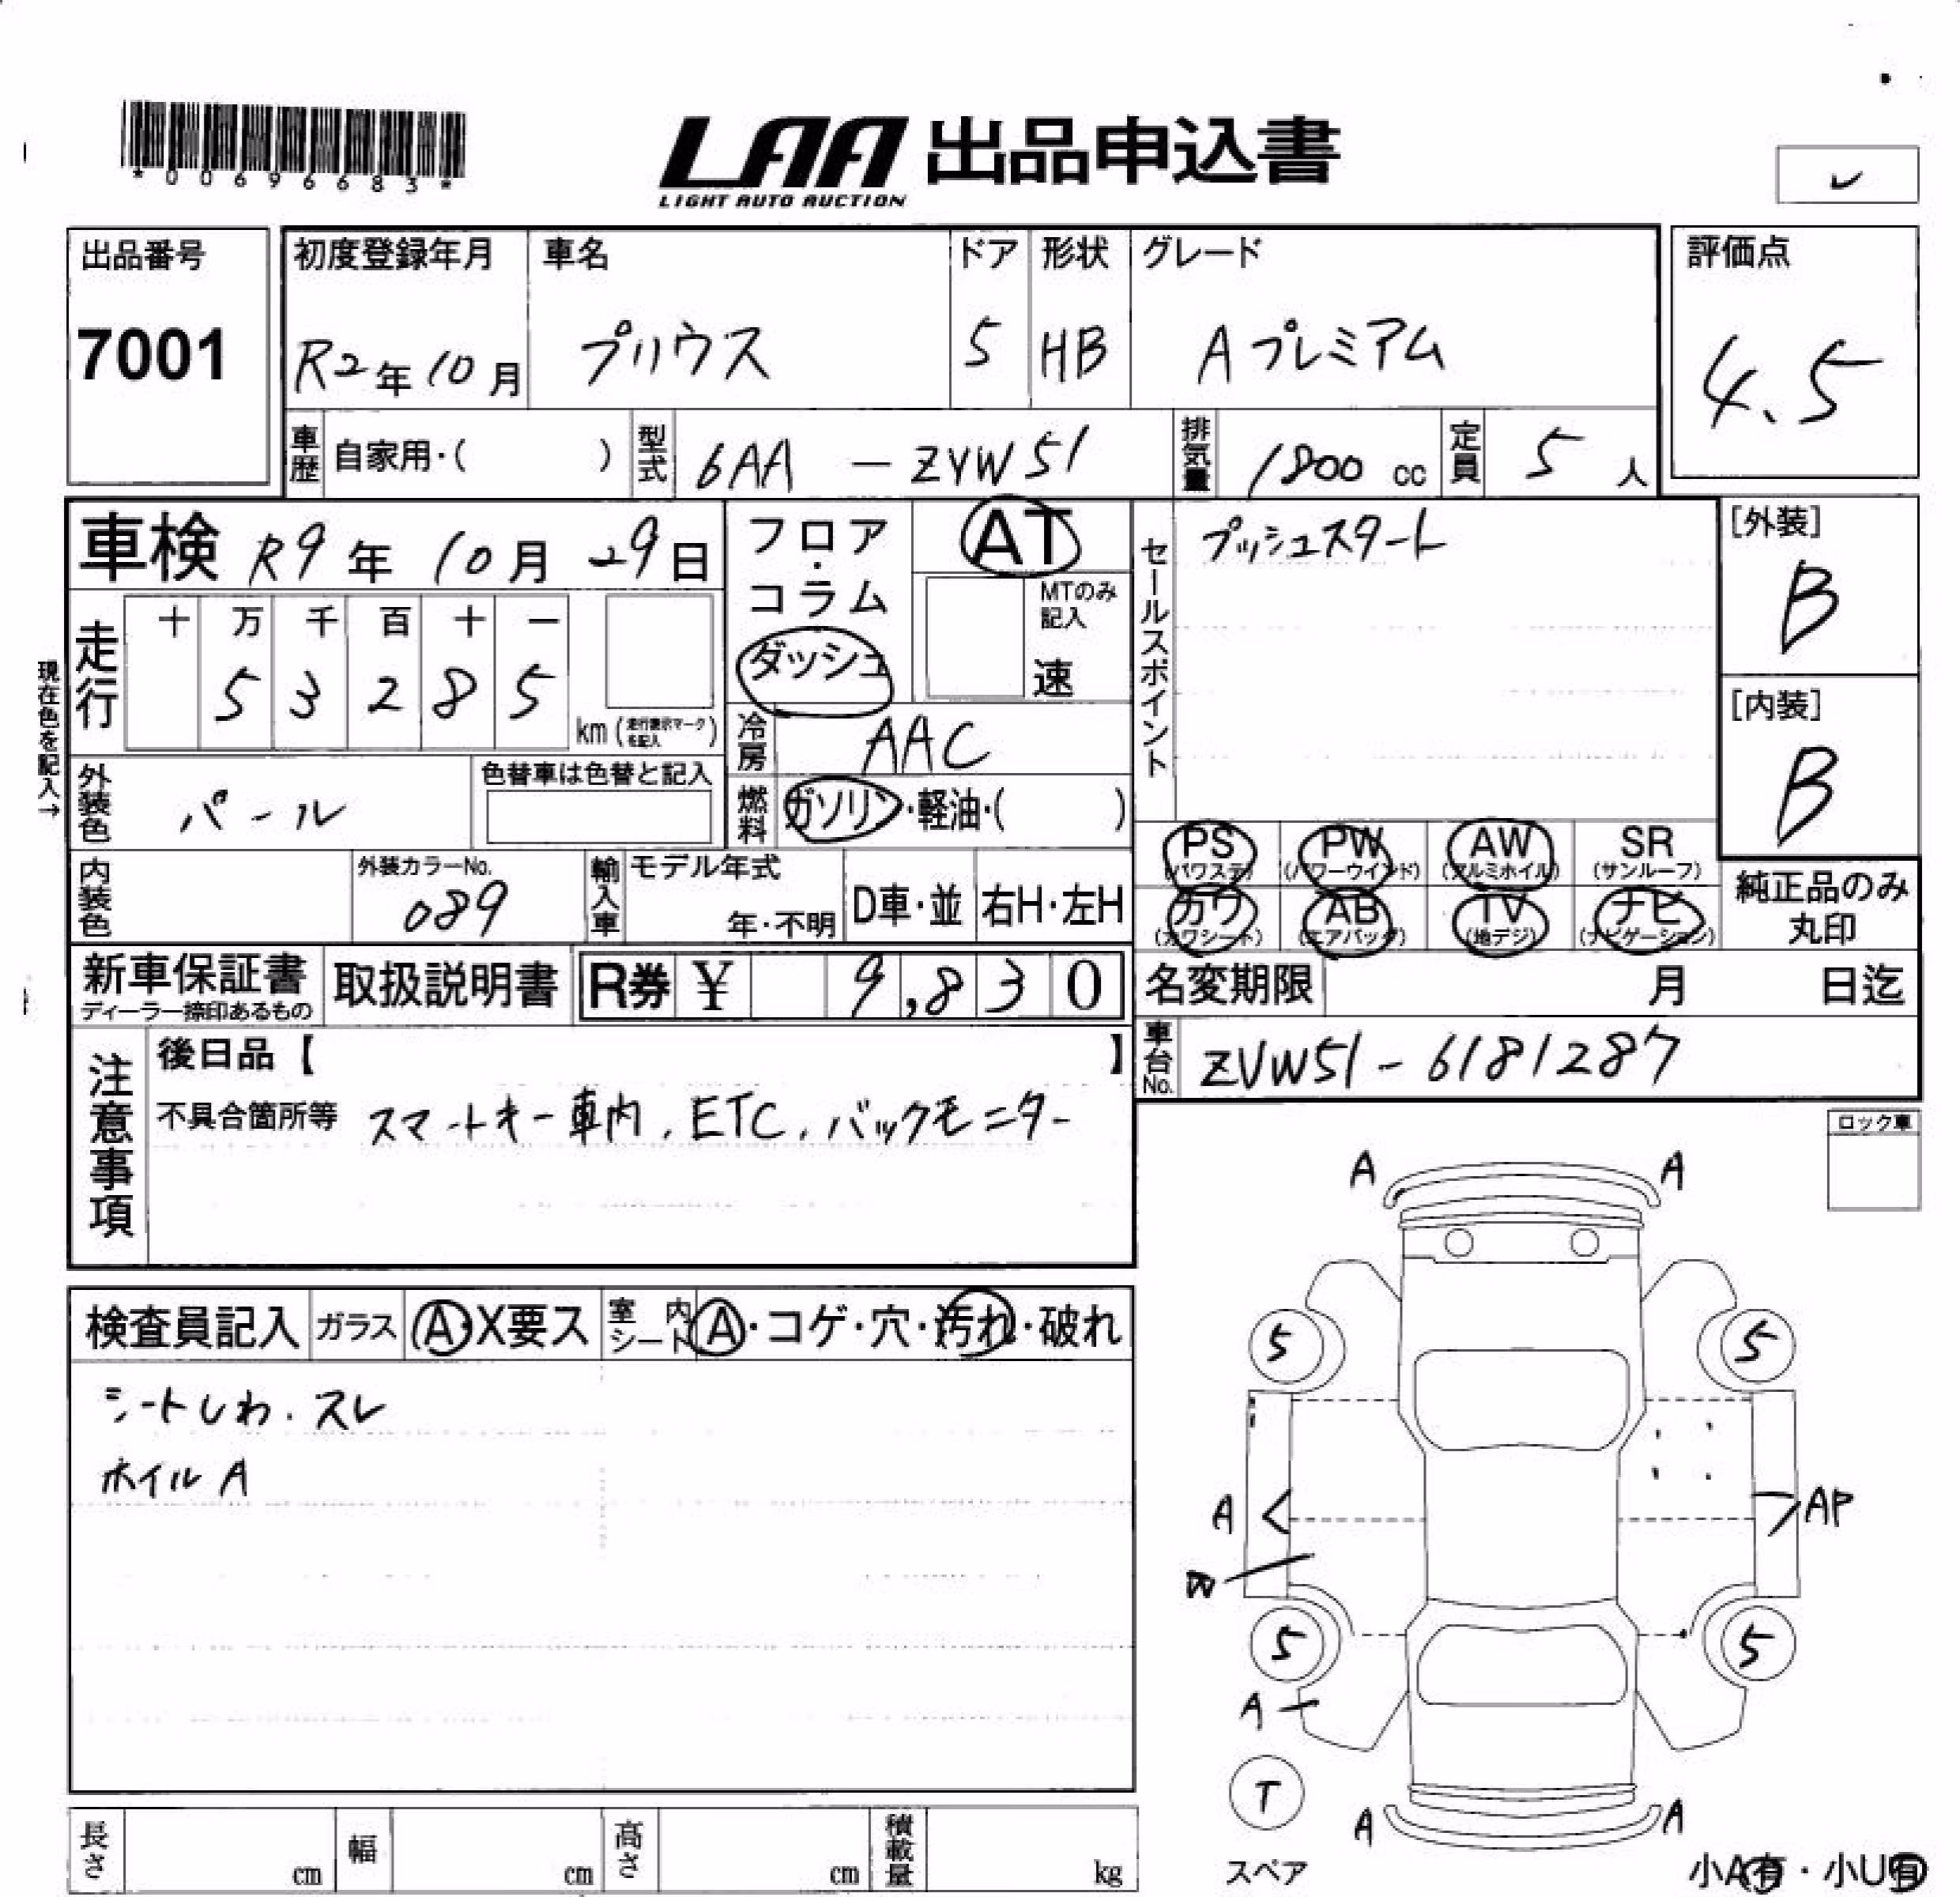 *00696683*
LAA 出品申込書
LIGHT AUTO AUCTION
出品番号
7001
初度登録年月
R2年10月
車名
プリウス
ドア
5
形状
HB
グレード
Aプレミアム
評価点
4.5
車歴
自家用・( )
型式
6AA - ZVW51
排気量
1800 cc
定員
5 人
車検 R9年 10月 29日
フロア・コラム
ダッシュ
AT
MTのみ記入
速
セールスポイント
プッシュスタート
[外装]
B
[内装]
B
現在色を記入→
走行
十 万 千 百 十 一
5 3 2 8 5
km (走行表示マークを記入)
冷房
AAC
外装色
パール
色替車は色替と記入
燃料
ガソリン・軽油・( )
内装色
外装カラーNo.
089
輸入車
モデル年式
年・不明
D車・並
右H・左H
PS (パワステ)
PW (パワーウインド)
AW (アルミホイル)
SR (サンルーフ)
カワ (カワシート)
AB (エアバッグ)
TV (地デジ)
ナビ (ナビゲーション)
純正品のみ丸印
新車保証書
ディーラー捺印あるもの
取扱説明書
R券 ¥ 9,830
名変期限 月 日迄
車台No.
ZVW51-6181287
注意事項
後日品【 】
不具合箇所等 スマートキー車内、ETC、バックモニター
ロック車
検査員記入
ガラス
A・X要ス
室内シート
A・コゲ・穴・汚れ・破れ
シートしわ・スレ
ホイルA
A A
5 5
A AP
W
5 5
A
T
スペア
A A
小A有・小U有
長さ cm
幅 cm
高さ cm
積載量 kg